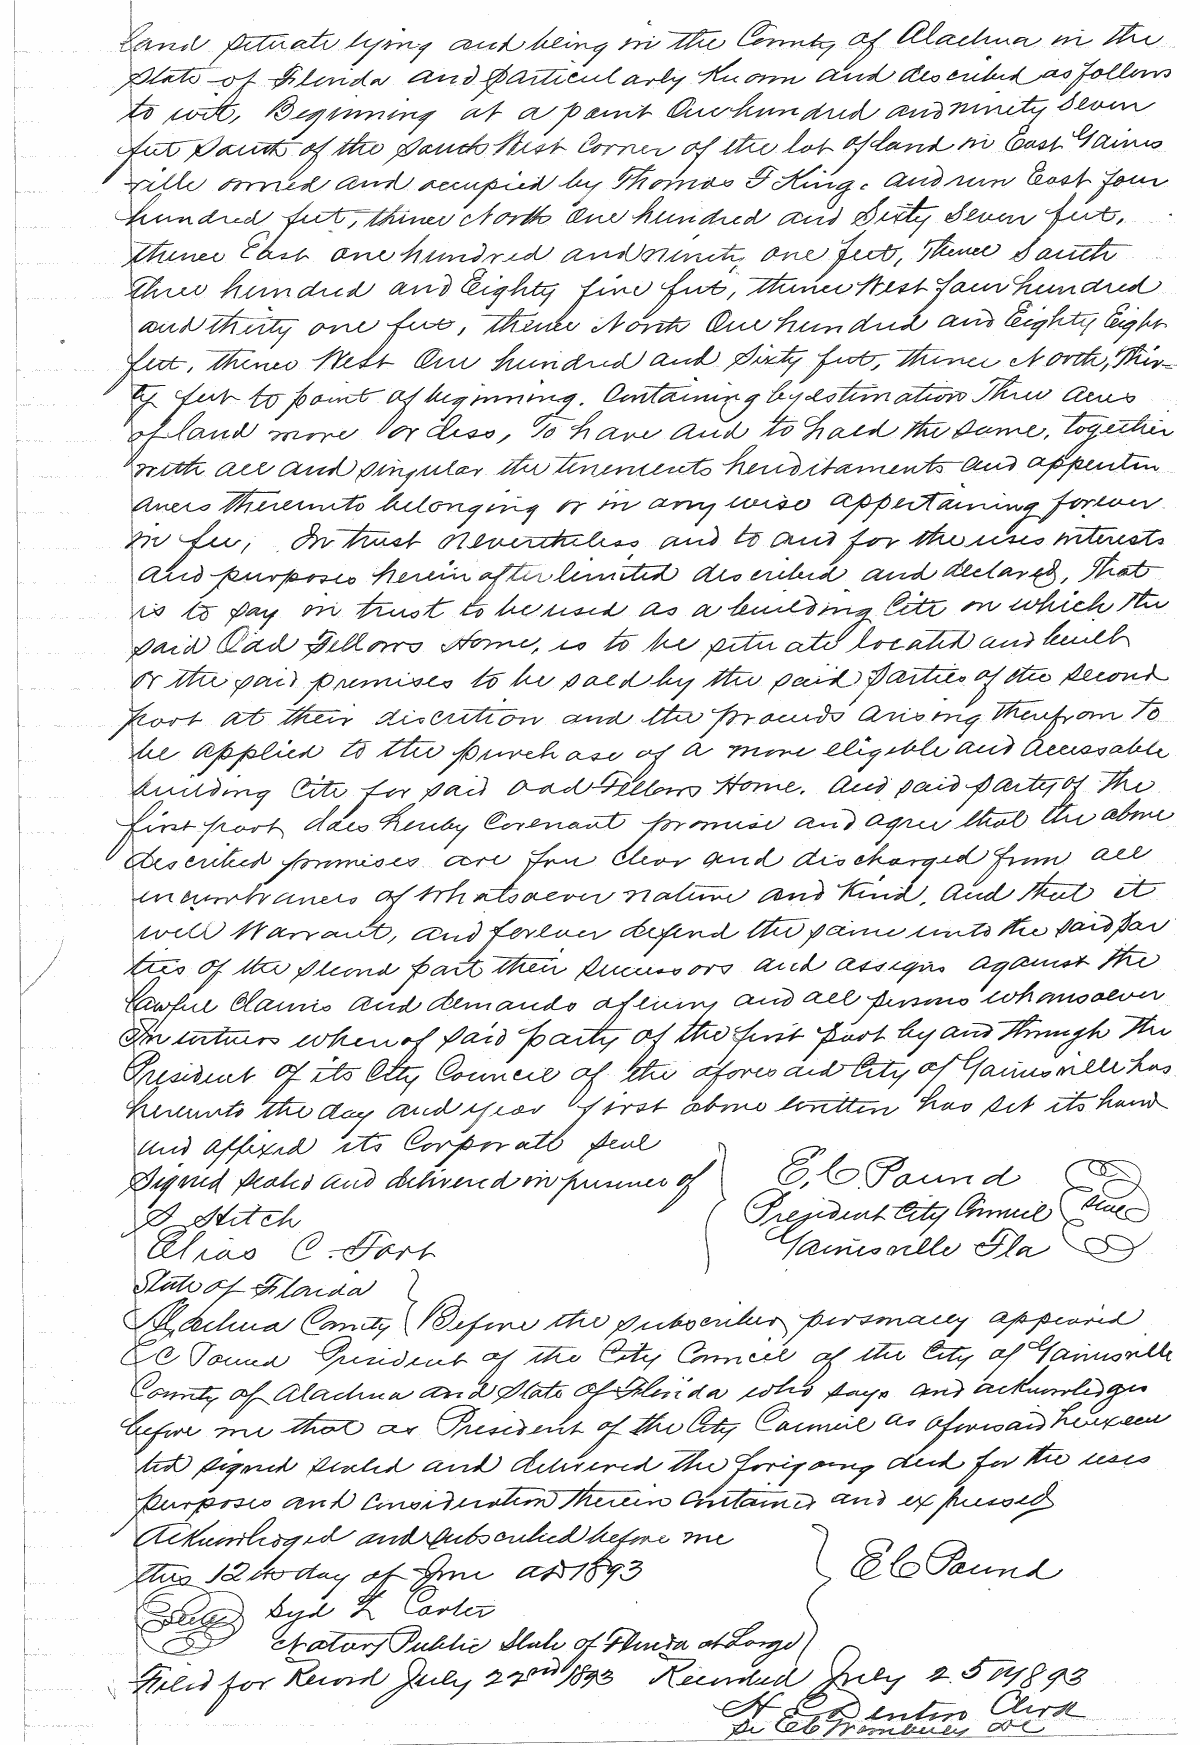 land situate lying and being in the County of Alachua in the
State of Florida and particularly Known and described as follows
to wit, Beginning at a point One hundred and ninety Seven
feet South of the South West Corner of the lot of land in East Gaines
ville owned and occupied by Thomas F King. and run East four
hundred feet, thence North One hundred and Sixty Seven feet,
thence East one hundred and ninety one feet, Thence South
Three hundred and Eighty five feet, thence West four hundred
and thirty one feet, thence North One hundred and Eighty Eight
feet, thence West One hundred and Sixty feet, thence North, Thir-
ty feet to point of beginning. Containing by estimation Three acres
of land more or less, To have and to hold the same, together
with all and singular the tenements hereditaments and appertin
ances thereunto belonging or in any wise appertaining forever
in fee, In trust nevertheless and to and for the uses interests
and purposes herein after limited described and declared, That
is to say in trust to be used as a building Cite on which the
said Odd Fellows Home, is to be situate located and built
or the said premises to be sold by the said Parties of the Second
part at their discretion and the proceeds arising therefrom to
be applied to the purchase of a more eligible and accessable
building Cite for said Odd Fellows Home. And said party of the
first part does hereby Covenant promise and agree that the above
described premises are free clear and discharged from all
incumbrances of whatsoever nature and Kind, and that it
will Warrant, and forever defend the same unto the said Par
ties of the second part their successors and assigns against the
lawful Claims and demands of every and all persons whomsoever
In witness whereof said party of the first part by and through the
President of its City Council of the aforesaid City of Gainesville has
hereunto the day and year first above written has set its hand
and affixed its Corporate seal
Signed sealed and delivered in presence of
E. C. Pound
President City Council Seal
Gainesville Fla
Stitch
Elias C. Fort
State of Florida
Alachua County Before the subscriber personally appeared
E C Pound President of the City Council of the City of Gainesville
County of Alachua and State of Florida who says and acknowledges
before me that as President of the City Council as aforesaid he execu
ted signed sealed and delivered the foregoing deed for the uses
purposes and consideration therein contained and expressed
Acknowledged and subscribed before me
this 12th day of June AD 1893
E C Pound
Seal Syd L Carter
Notary Public State of Florida at Large
Filed for Record July 22nd 1893 Recorded July 25th 1893
Denton Clerk
DC